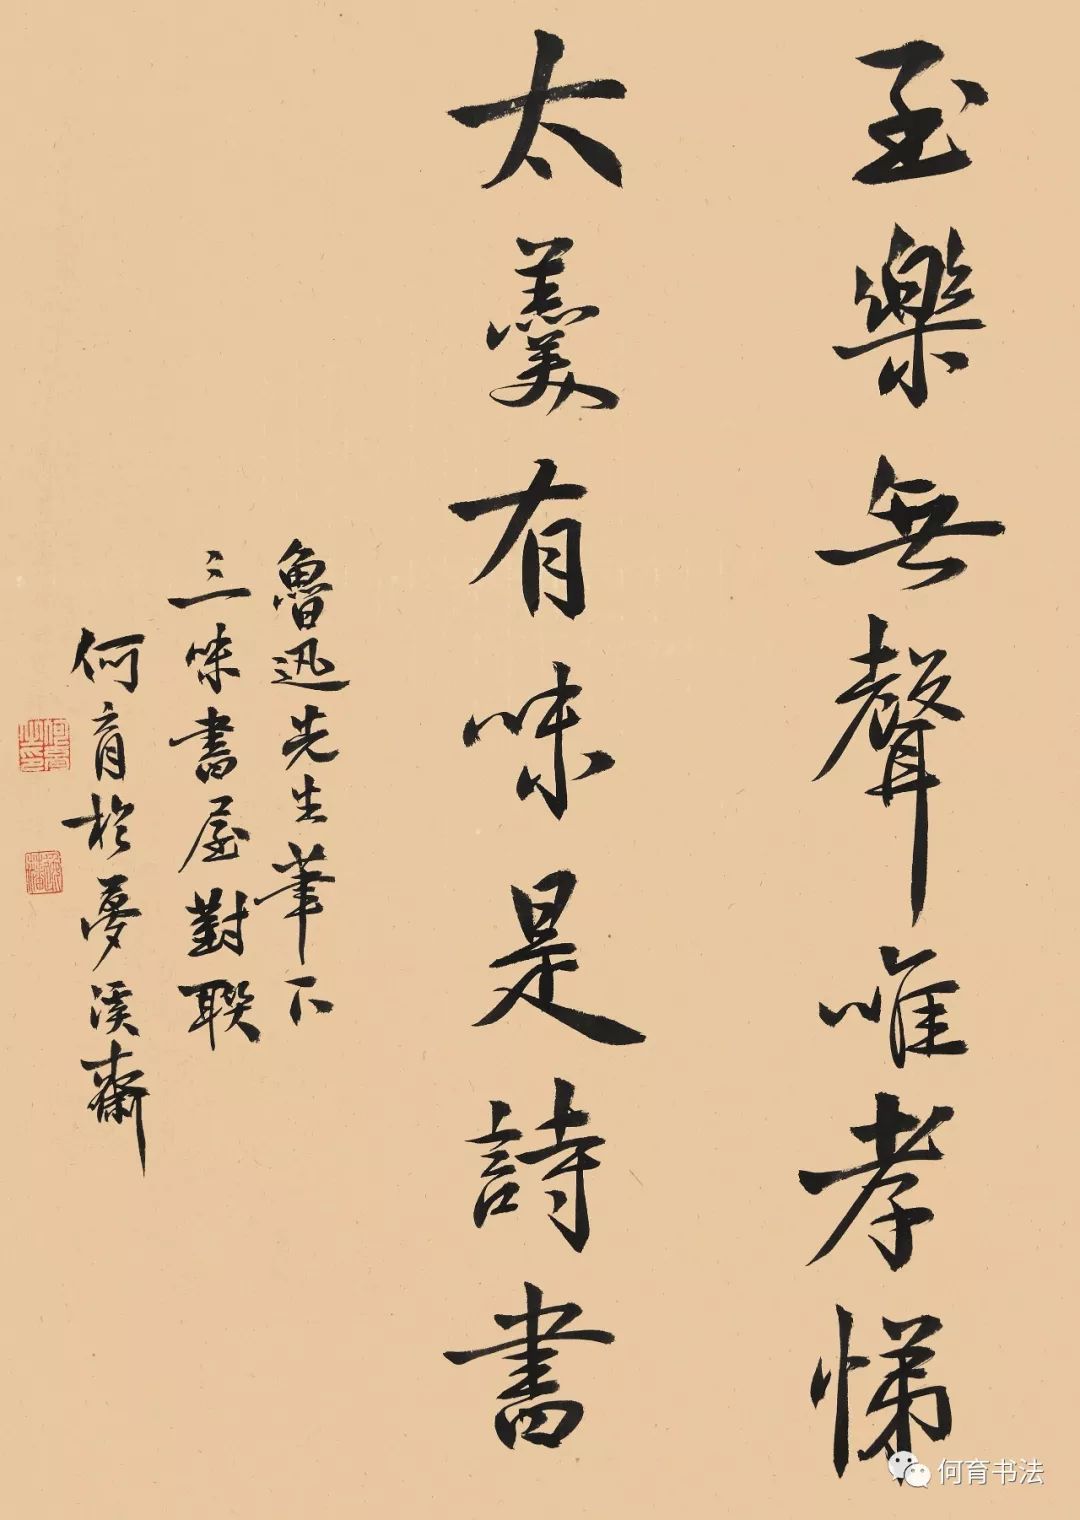 至樂無聲唯孝悌
太羹有味是詩書
魯迅先生筆下
三味書屋對聯
何育於夢溪齋
何育书法